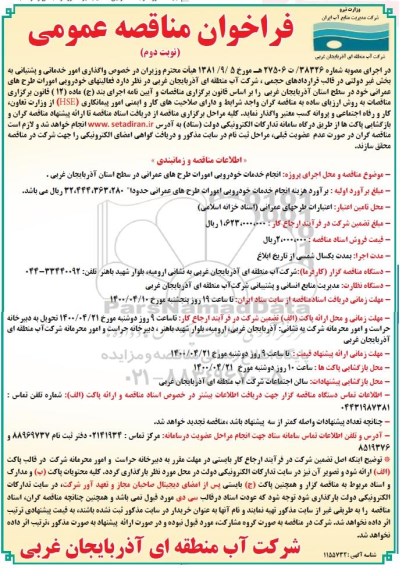 وزارت نیرو
شرکت مدیریت منابع آب ایران
شرکت آب منطقه ای آذربایجان غربی
فراخوان مناقصه عمومی
(نوبت دوم)
در اجرای مصوبه شماره ۳۸۳۲۶/ت ۲۷۵۰۶ هـ مورخ ۵ /۹/ ۱۳۸۱ هیأت محترم وزیران در خصوص واگذاری امور خدماتی و پشتیبانی به
بخش غیر دولتی در قالب قراردادهای حجمی ، شرکت آب منطقه ای آذربایجان غربی در نظر دارد فعالیتهای خودرویی امورات طرح های
عمرانی خود در سطح استان آذربایجان غربی را بر اساس قانون برگزاری مناقصات و آیین نامه اجرای بند (ج) ماده (۱۲) قانون برگزاری
مناقصات به روش ارزیابی ساده به مناقصه گران واجد شرایط و دارای صلاحیت های کار و ایمنی امور پیمانکاری (HSE) از وزارت تعاون،
کار و رفاه اجتماعی و پروانه کسب معتبر واگذار نماید. کلیه مراحل برگزاری مناقصه از دریافت اسناد مناقصه تا ارائه پیشنهاد مناقصه گران و
بازگشایی پاکت ها از طریق درگاه سامانه تدارکات الکترونیکی دولت (ستاد) به آدرس www.setadiran.ir انجام خواهد شد و لازم است
مناقصه گران در صورت عدم عضویت قبلی، مراحل ثبت نام در سایت مذکور و دریافت گواهی امضای الکترونیکی را جهت شرکت در مناقصه
محقق سازند.
« اطلاعات مناقصه و زمانبندی »
– موضوع مناقصه و محل اجرای پروژه: انجام خدمات خودرویی امورات طرح های عمرانی در سطح استان آذربایجان غربی .
– مبلغ برآورد اولیه : برآورد هزینه انجام خدمات خودرویی امورات طرح های عمرانی حدودا" ۳۲،۴۴۴،۳۶۳،۲۸۰ ریال می باشد.
– محل تامین اعتبار: اعتبارات طرحهای عمرانی (اسناد خزانه اسلامی)
– مبلغ تضمین شرکت در فرآیند ارجاع کار : ۱،۶۲۳،۰۰۰،۰۰۰ ریال
– قیمت فروش اسناد مناقصه : ۲،۰۰۰،۰۰۰ ریال
– مدت اجرا: بمدت یکسال شمسی از تاریخ ابلاغ
– دستگاه مناقصه گزار (کارفرما): شرکت آب منطقه ای آذربایجان غربی به نشانی ارومیه، بلوار شهید باهنر تلفن: ۳۳۴۴۰۰۹۲-۰۴۴
– دستگاه نظارت: مدیریت منابع انسانی و پشتیبانی شرکت آب منطقه ای آذربایجان غربی
– مهلت زمانی دریافت اسناد مناقصه از سایت ستاد ایران: تا ساعت ۱۹ روز پنجشنبه مورخ ۱۴۰۰/۰۴/۱۰
– مهلت زمانی و محل ارائه پاکت (الف) تضمین شرکت در فرآیند ارجاع کار: تا ساعت ۹ روز دوشنبه مورخ ۱۴۰۰/۰۴/۲۱ تحویل به دبیرخانه
حراست و امور محرمانه شرکت به نشانی: آذربایجان غربی، ارومیه، بلوار شهید باهنر ، دبیرخانه حراست و امور محرمانه شرکت آب منطقه ای
آذربایجان غربی
– مهلت زمانی ارائه پیشنهاد قیمت : تا ساعت ۹ روز دوشنبه مورخ ۱۴۰۰/۰۴/۲۱
– محل بازگشایی پاکت ها : ساعت ۱۰ روز دوشنبه مورخ ۱۴۰۰/۰۴/۲۱
– محل بازگشایی پیشنهادات: سالن اجتماعات شرکت آب منطقه ای آذربایجان غربی
– اطلاعات تماس دستگاه مناقصه گزار جهت دریافت اطلاعات بیشتر در خصوص اسناد مناقصه و ارائه پاکت (الف): شماره تلفن تماس :
۰۴۴۳۱۹۸۷۳۸۱
– چنانچه تعداد پیشنهادات واصله کمتر از سه پیشنهاد باشد، مناقصه تجدید خواهد شد.
– آدرس و تلفن اطلاعات تماس سامانه ستاد جهت انجام مراحل عضویت درسامانه: مرکز تماس : ۰۲۱۴۱۹۳۴ دفتر ثبت نام ۸۸۹۶۹۷۳۷ و
۸۵۱۹۳۷۶
– توضیح اینکه اصل تضمین شرکت در فرآیند ارجاع کار بایستی در مهلت مقرر به دبیرخانه حراست و امور محرمانه شرکت در قالب پاکت
(الف) ارائه شود و تصویر آن نیز در سایت تدارکات الکترونیکی دولت در محل مورد نظر بارگذاری گردد. کلیه محتویات پاکت (ب) و مدارک
و اسناد مربوط به مناقصه گزار و همچنین پاکت (ج) بایستی پس از امضای دیجیتال صاحبان مجاز و تعهد آور شرکت، در سایت تدارکات
الکترونیکی دولت بارگذاری شود توجه شود که عودت اسناد درقالب سی دی مورد قبول نمی باشد و همچنین چنانچه مناقصه گران، اسناد
مناقصه را به طریقی غیر از سایت مذکور تهیه نمایند و نام آنها به عنوان خریدار در سایت مذکور ثبت نشده باشد، به قیمت پیشنهادی ترتیب
اثر داده نخواهد شد. شرکت در مناقصه به صورت گروه مشارکت، مورد قبول نبوده و در صورت ارائه پیشنهاد به صورت مذکور، ترتیب اثر داده
نخواهد شد.
شرکت آب منطقه ای آذربایجان غربی
شناسه آگهی : ۱۱۵۵۷۳۲